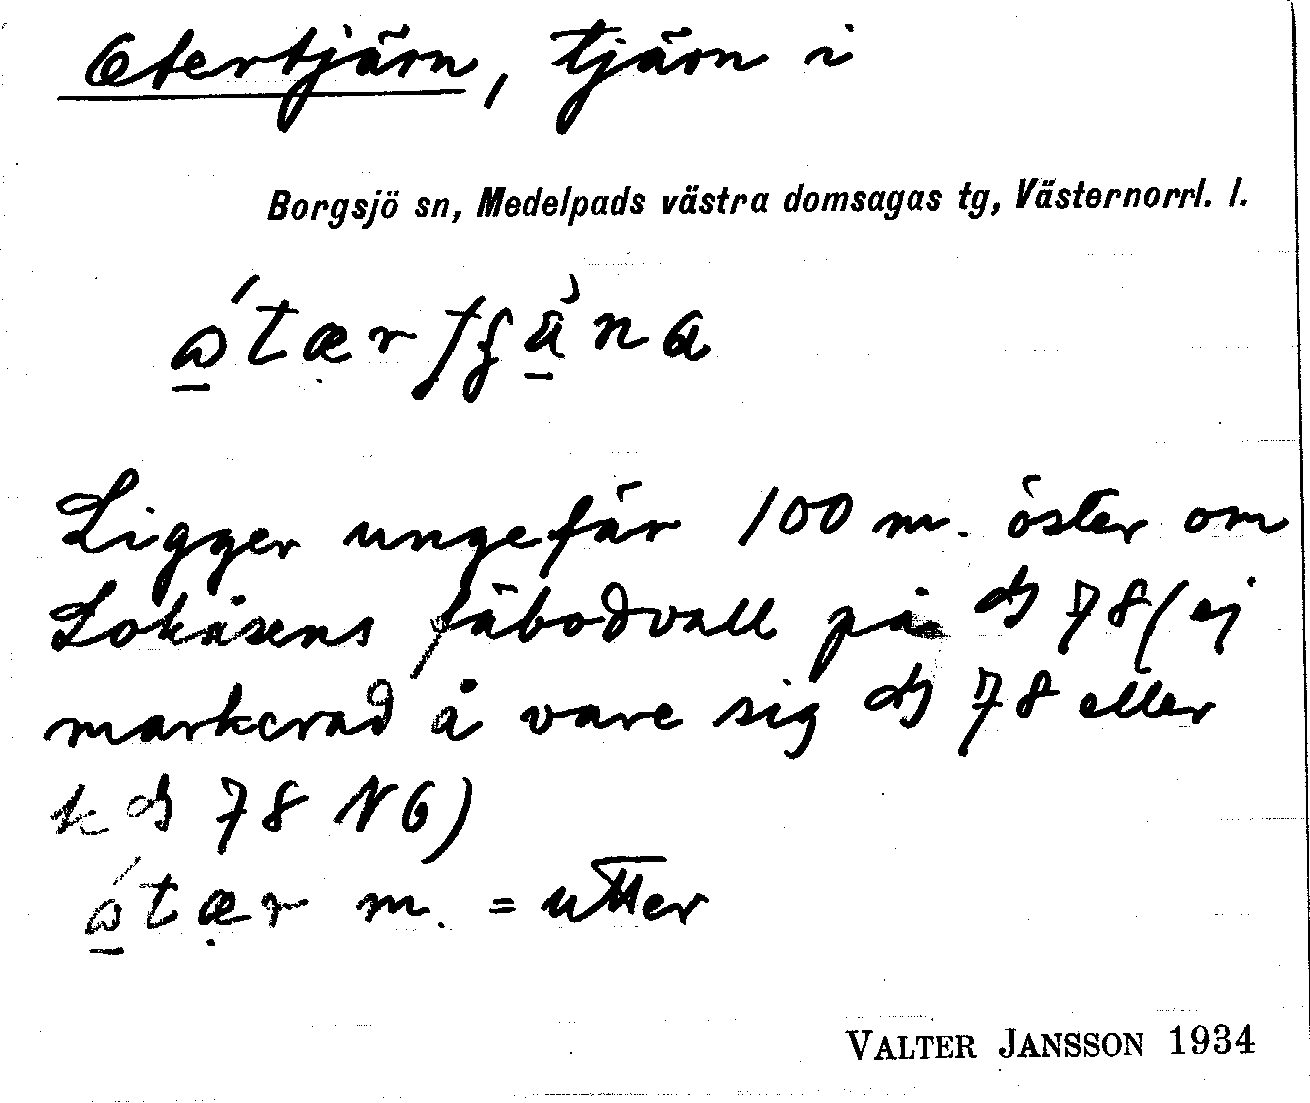 Otertjärn, tjärn i
Borgsjö sn, Medelpads västra domsagas tg, Västernorrl. l.
Ligger ungefär 100 m. öster om
Lokåsens fäbodvall på 78 (ej
markerad å vare sig 78 eller
78 NG)
m. = utter
VALTER JANSSON 1934